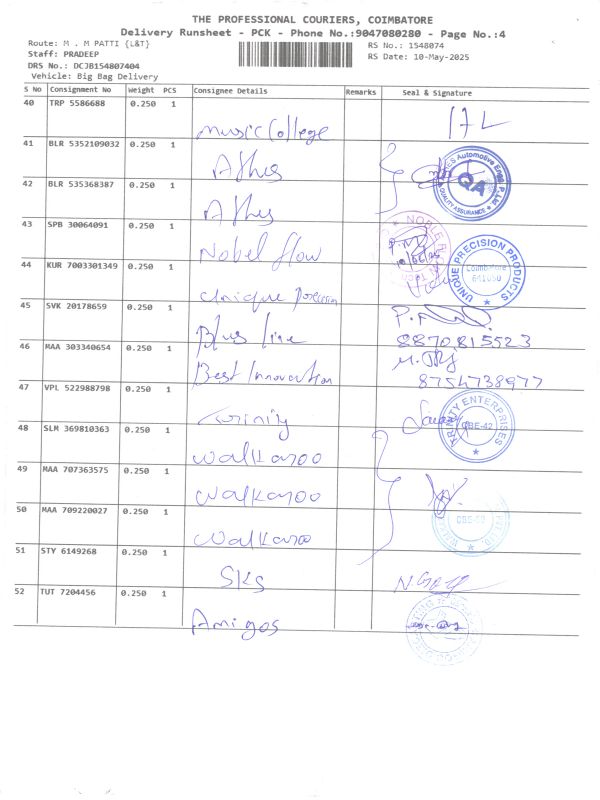 THE PROFESSIONAL COURIERS, COIMBATORE
Delivery Runsheet - PCK - Phone No.:9047080280 - Page No.:4
Route: M . M PATTI {L&T}
RS No.: 1548074
Staff: PRADEEP
RS Date: 10-May-2025
DRS No.: DCJB154807404
Vehicle: Big Bag Delivery
S No Consignment No Weight PCS Consignee Details Remarks Seal & Signature
40 TRP 5586688 0.250 1 Music College
41 BLR 5352109032 0.250 1 Athis
42 BLR 535368387 0.250 1 Athis
QUALITY ASSURANCE QA
43 SPB 30064091 0.250 1 Nobel flow
44 KUR 7003301349 0.250 1 Unique Precision
UNIQUE PRECISION PRODUCTS Coimbatore 641050
45 SVK 20178659 0.250 1 Blue line
8870815523
46 MAA 303340654 0.250 1 Best Innovation
8754738977
47 VPL 522988798 0.250 1 Trinity
TRINITY ENTERPRISES CBE-42
48 SLM 369810363 0.250 1 Walkaroo
49 MAA 707363575 0.250 1 Walkaroo
50 MAA 709220027 0.250 1 Walkaroo
51 STY 6149268 0.250 1 SKS
52 TUT 7204456 0.250 1 Amigos